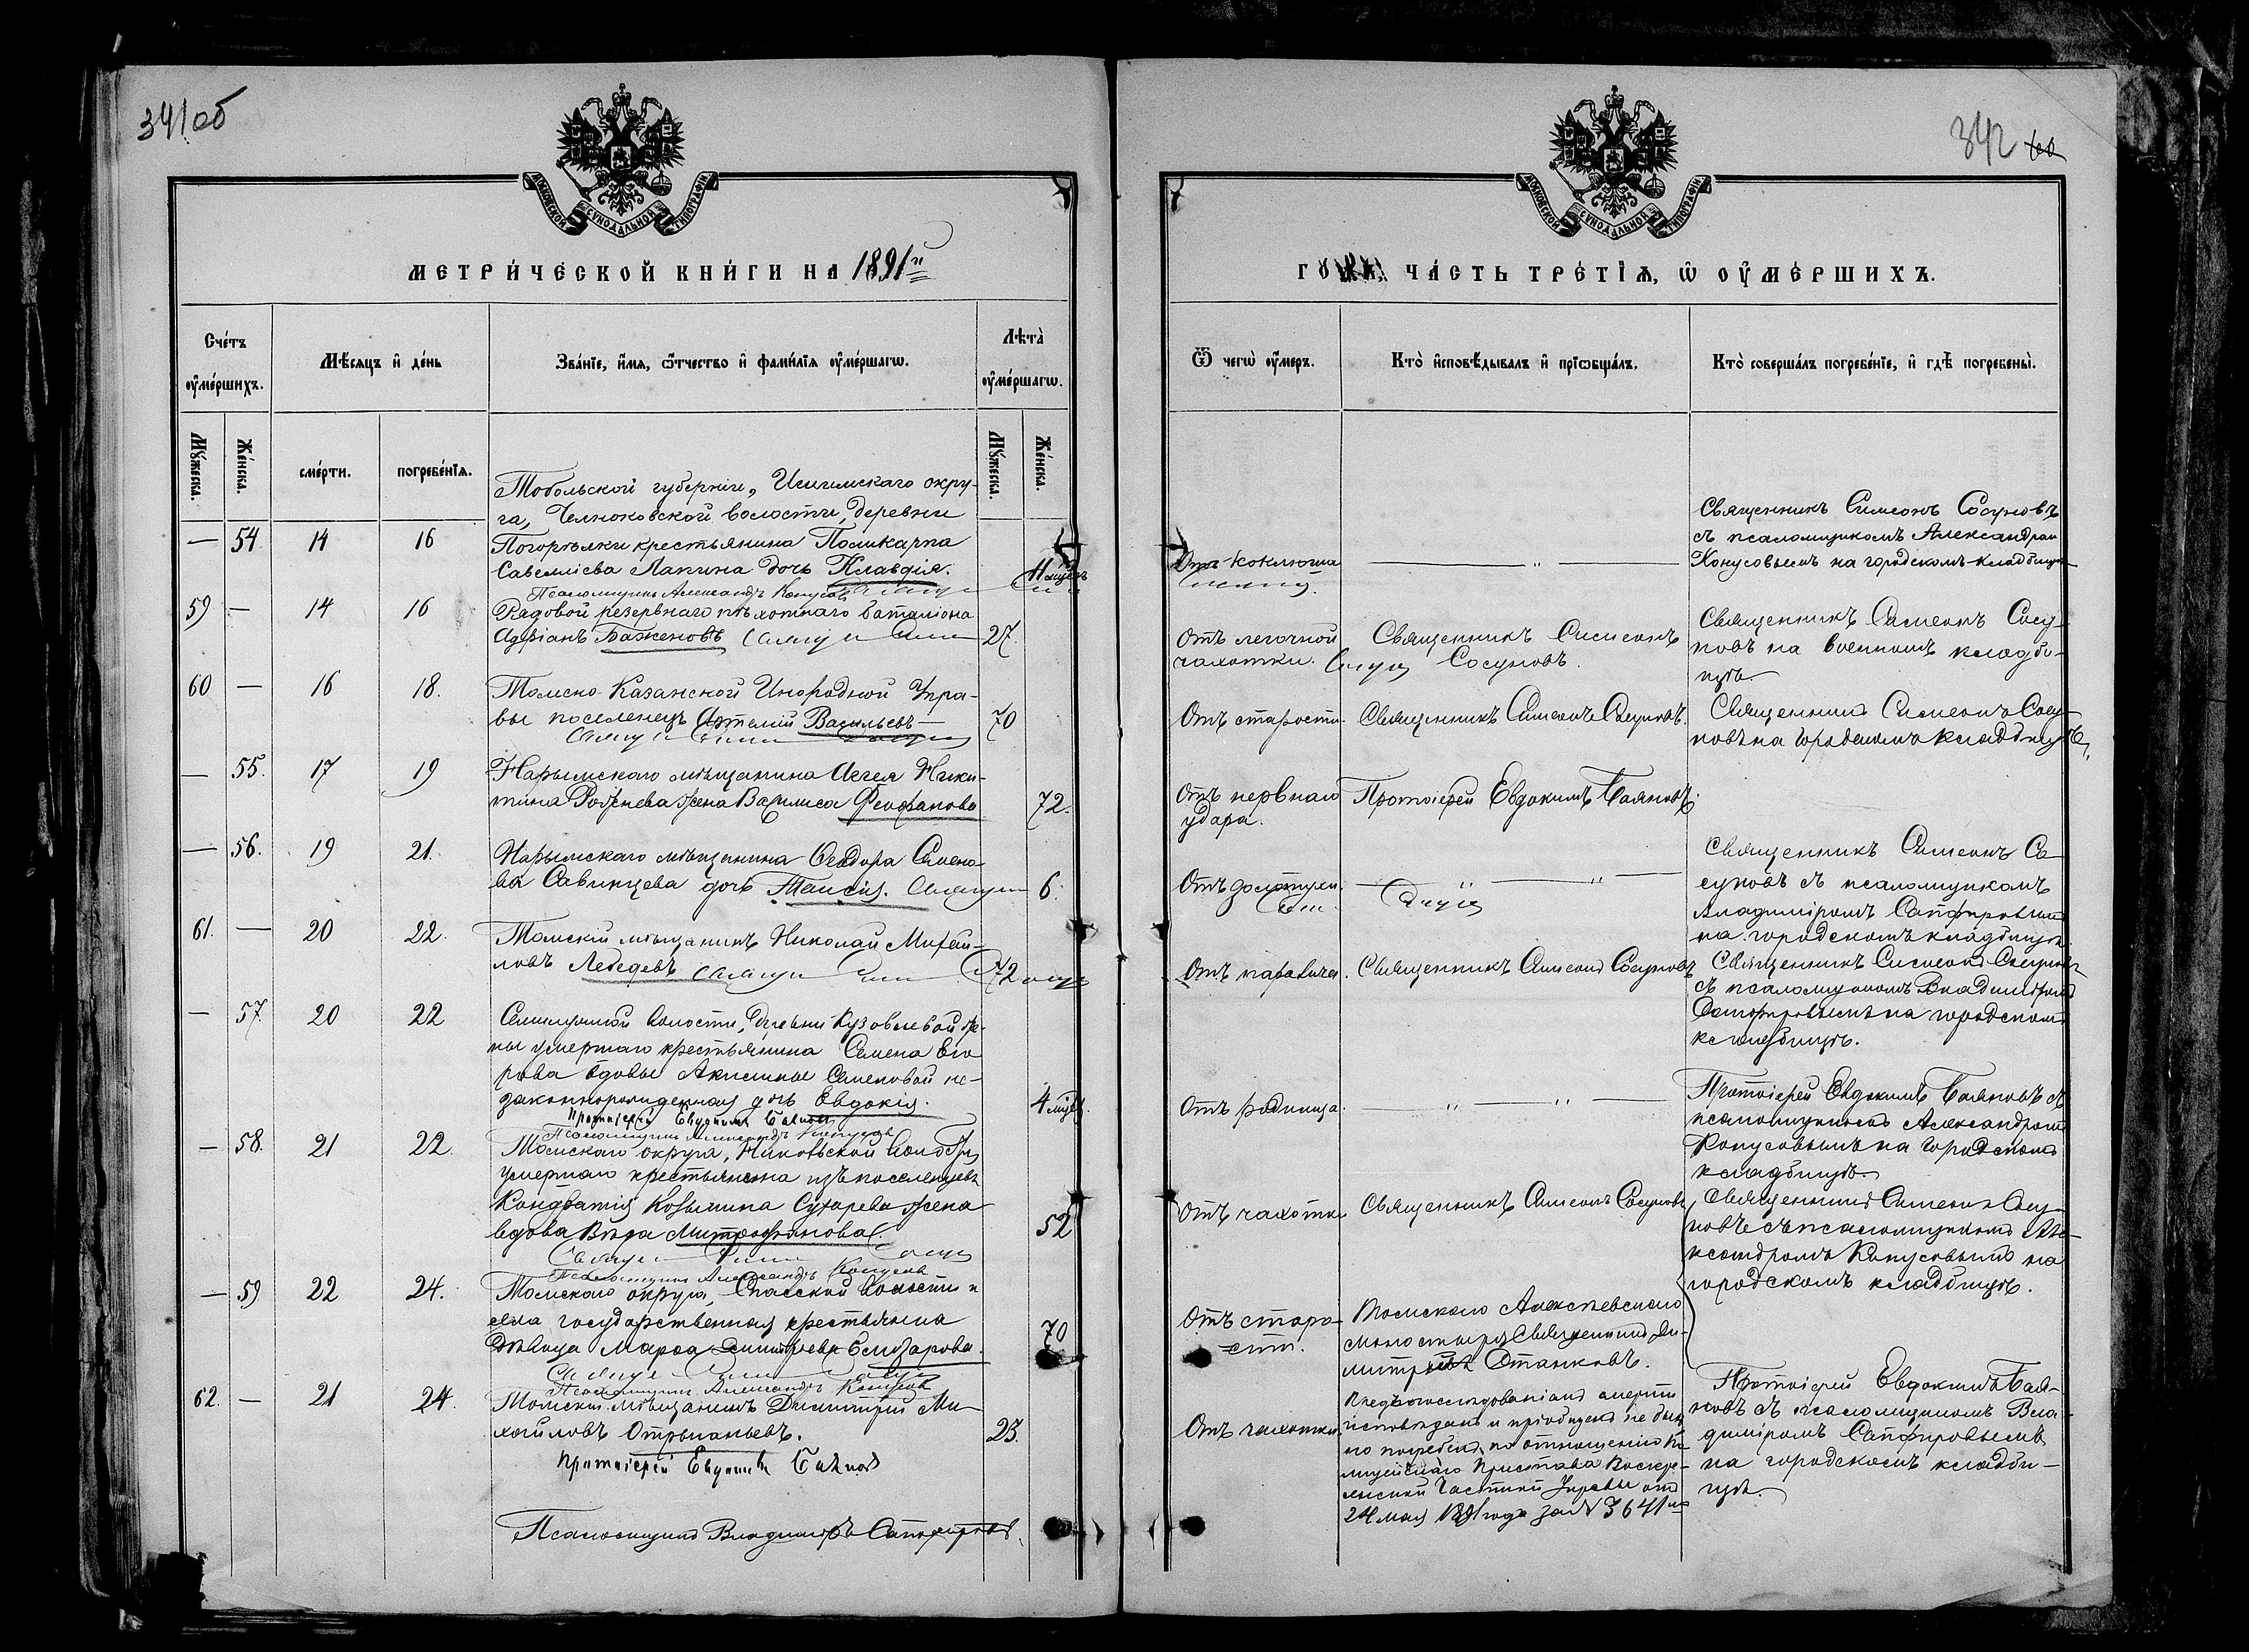 341 об
МОСКОВСКОЙ СѴНОДАЛЬНОЙ ТИПОГРАФІИ.
МЕТРИ́ЧЕСКОЙ КНИ́ГИ НА 1891й
Сче́тъ ᲂу҆ме́ршихъ.
Мѣ́сяцъ и҆ де́нь
Зва́нїе, и҆́мѧ, ѻ҆́тчество и҆ фами́лїѧ ᲂу҆ме́ршагѡ.
Лѣта̀ ᲂу҆ме́ршагѡ.
Мꙋ́жеска.
Же́нска.
сме́рти.
погребе́нїѧ.
Мꙋ́жеска.
Же́нска.
Тобольской губерніи, Ишимскаго окру-
га, Челноковской волости, деревни
— 54 14 16 Погорѣлки крестьянина Поликарпа
Савелліева Лапина дочь Клавдія. 11 мѣсц.
Псаломщикъ Александръ Конусовъ
59 — 14 16 Рядовой резервнаго пѣхотнаго баталіона
Адріанъ Баженовъ 27.
60 — 16 18. Томско-Казанской Инородной Упра-
вы поселенецъ Артемій Васильевъ 70
— 55. 17 19 Нарымскаго мѣщанина Аггея Ники-
тина Родунева жена Василиса Феофанова 72.
— 56. 19 21. Нарымскаго мѣщанина Ѳеодора Симео-
ва Савинцева дочь Таисія. 6.
61. — 20 22. Томскій мѣщанинъ Николай Михай-
ловъ Лебедевъ 72
— 57. 20 22 Семилужной волости, деревни Кузовлевой же-
ны умершаго крестьянина Семена Его
рова вдовы Акилины Семеновой не-
законнорожденная дочь Евдокія. 4 мѣсц.
Протоіерей Евдокимъ Баяновъ
Псаломщикъ Александръ Конусовъ
— 58. 21 22. Томскаго округа, волости
умершаго крестьянина изъ поселенцевъ
Кондратія Козьмина Сухарева жена
вдова Вѣра Митрофанова. 52
Псаломщикъ Александръ Конусовъ
— 59 22 24. Томскаго округа, Спасской волости и
села государственная крестьянка
дѣвица Марѳа Димитріева Елизарова. 70
Псаломщикъ Александръ Конусовъ
62. — 21 24. Томскій мѣщанинъ Димитрій Ми-
хайловъ Отрыганьевъ. 23.
Протоіерей Евдокимъ Баяновъ
Псаломщикъ Владиміръ Сапфировъ.
342
МОСКОВСКОЙ СѴНОДАЛЬНОЙ ТИПОГРАФІИ.
ГО́ДА, ЧА́СТЬ ТРЕ́ТЇѦ, Ѡ҆ ᲂУ҆МЕ́РШИХЪ.
Ѿ чегѡ̀ ᲂу҆́меръ.
Кто̀ и҆сповѣ́дывалъ и҆ прїѡбща́лъ.
Кто̀ соверша́лъ погребе́нїе, и҆ гдѣ̀ погребены̀.
Отъ коклюша
— „ —
Священникъ Симеонъ Сосуновъ
съ псаломщикомъ Александром
Конусовымъ на городскомъ кладбищѣ
Отъ легочной
чахотки.
Священникъ Симеонъ
Сосуновъ.
Священникъ Симеонъ Сосу-
новъ на военномъ кладби-
щѣ.
Отъ старости
Священникъ Симеонъ Сосуновъ.
Священникъ Симеонъ Сосу-
новъ на городскомъ кладбищѣ.
Отъ нервнаго
удара.
Протоіерей Евдокимъ Баяновъ.
— „ — „ —
Священникъ Симеонъ Со-
суновъ съ псаломщикомъ
Владиміромъ Сапфировымъ
на городскомъ кладбищѣ.
Отъ паралича.
Священникъ Симеонъ Сосуновъ
Священникъ Симеонъ Сосуновъ
съ псаломщикомъ Владиміромъ
Сапфировымъ на городскомъ
кладбищѣ.
Отъ родимца.
— „ — „ —
Протоіерей Евдокимъ Баяновъ съ
псаломщикомъ Александромъ
Конусовымъ на городскомъ
кладбищѣ.
Отъ чахотки
Священникъ Симеонъ Сосуновъ
Священникъ Симеонъ Сосу-
новъ съ псаломщикомъ Але-
ксандромъ Конусовымъ на
городскомъ кладбищѣ.
Отъ старо-
сти.
Томскаго Алексѣевскаго
монастыря Священникъ Ди-
митрій Станковъ.
Отъ чахотки
исповѣданъ и пріобщенъ не былъ
но погребенъ по отношенію По-
лицейскаго Пристава Воскре-
сенской Части Управы отъ
24 мая 1891 года за № 3641мъ
Протоіерей Евдокимъ Бая-
новъ съ псаломщикомъ Вла-
диміромъ Сапфировымъ
на городскомъ кладби-
щѣ.